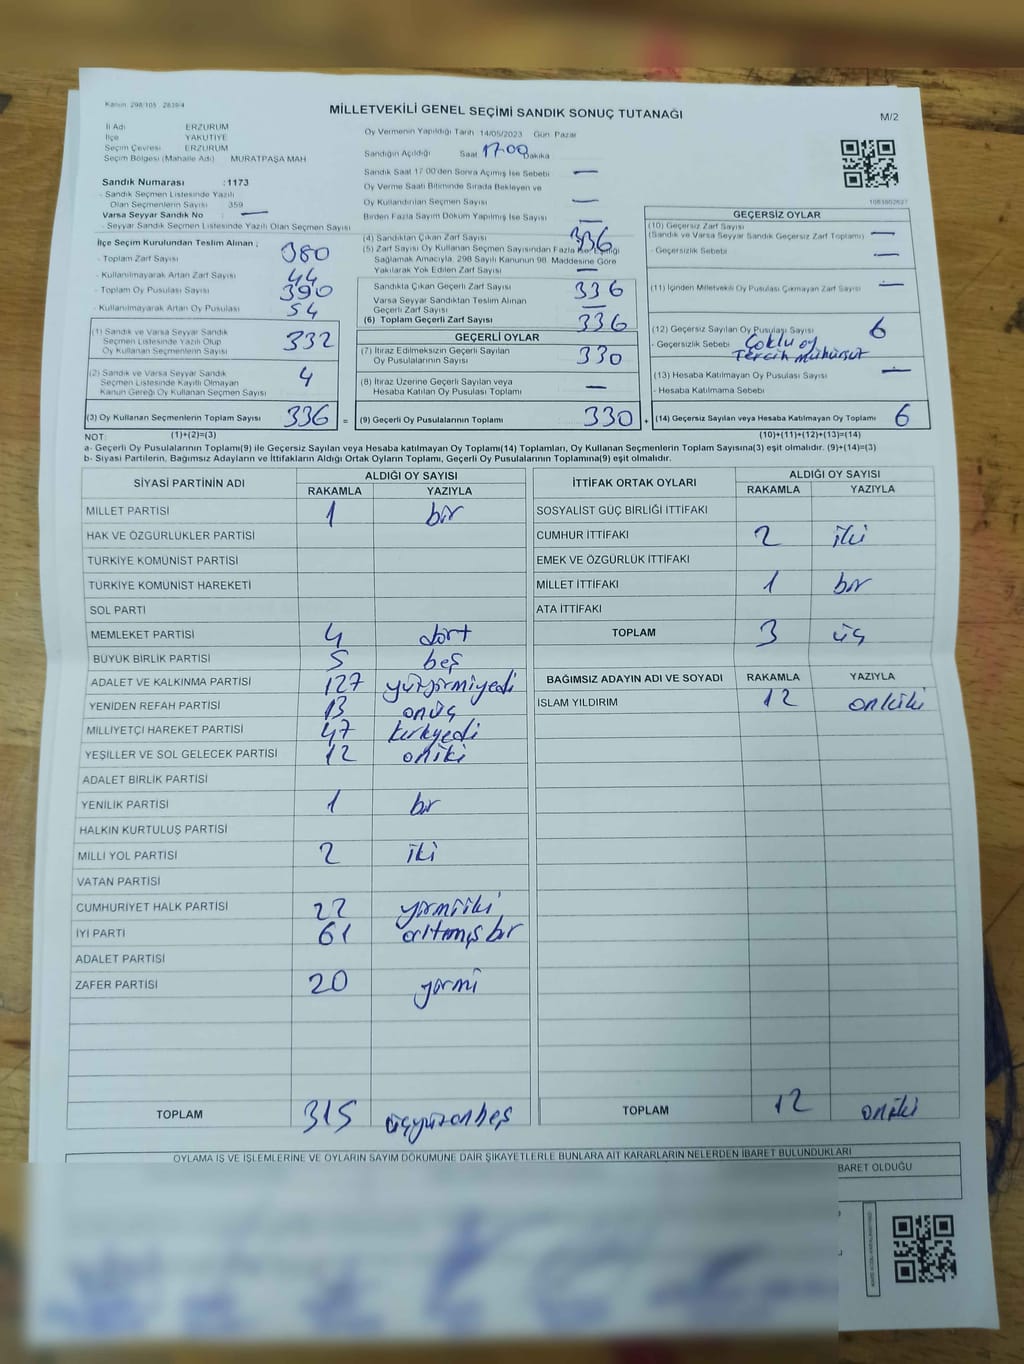 Kanun: 298/105 2839/4
MİLLETVEKİLİ GENEL SEÇİMİ SANDIK SONUÇ TUTANAĞI
M/2
İl Adı ERZURUM
İlçe YAKUTİYE
Seçim Çevresi ERZURUM
Seçim Bölgesi (Mahalle Adı) MURATPAŞA MAH
Sandık Numarası :1173
- Sandık Seçmen Listesinde Yazılı
Olan Seçmenlerin Sayısı 359
Varsa Seyyar Sandık No —
- Seyyar Sandık Seçmen Listesinde Yazılı Olan Seçmen Sayısı
Oy Vermenin Yapıldığı Tarih 14/05/2023 Gün Pazar
Sandığın Açıldığı Saat 17.00 Dakika
Sandık Saat 17:00'den Sonra Açılmış İse Sebebi —
Oy Verme Saati Bitiminde Sırada Bekleyen ve
Oy Kullandırılan Seçmen Sayısı —
Birden Fazla Sayım Döküm Yapılmış İse Sayısı —
1083802627
İlçe Seçim Kurulundan Teslim Alınan ;
- Toplam Zarf Sayısı 380
- Kullanılmayarak Artan Zarf Sayısı 44
- Toplam Oy Pusulası Sayısı 390
- Kullanılmayarak Artan Oy Pusulası 54
(1) Sandık ve Varsa Seyyar Sandık
Seçmen Listesinde Yazılı Olup
Oy Kullanan Seçmenlerin Sayısı 332
(2) Sandık ve Varsa Seyyar Sandık
Seçmen Listesinde Kayıtlı Olmayan
Kanun Gereği Oy Kullanan Seçmen Sayısı 4
(3) Oy Kullanan Seçmenlerin Toplam Sayısı 336 =
(4) Sandıktan Çıkan Zarf Sayısı 336
(5) Zarf Sayısı Oy Kullanan Seçmen Sayısından Fazla ise, Eşitliği
Sağlamak Amacıyla, 298 Sayılı Kanunun 98. Maddesine Göre
Yakılarak Yok Edilen Zarf Sayısı —
Sandıkta Çıkan Geçerli Zarf Sayısı 336
Varsa Seyyar Sandıktan Teslim Alınan
Geçerli Zarf Sayısı —
(6) Toplam Geçerli Zarf Sayısı 336
GEÇERLİ OYLAR
(7) İtiraz Edilmeksizin Geçerli Sayılan
Oy Pusulalarının Sayısı 330
(8) İtiraz Üzerine Geçerli Sayılan veya
Hesaba Katılan Oy Pusulası Toplamı —
(9) Geçerli Oy Pusulalarının Toplamı 330 +
GEÇERSİZ OYLAR
(10) Geçersiz Zarf Sayısı
(Sandık ve Varsa Seyyar Sandık Geçersiz Zarf Toplamı) —
- Geçersizlik Sebebi —
(11) İçinden Milletvekili Oy Pusulası Çıkmayan Zarf Sayısı —
(12) Geçersiz Sayılan Oy Pusulası Sayısı 6
- Geçersizlik Sebebi Çoklu oy
Tercih mühürsüz
(13) Hesaba Katılmayan Oy Pusulası Sayısı —
- Hesaba Katılmama Sebebi
(14) Geçersiz Sayılan veya Hesaba Katılmayan Oy Toplamı 6
NOT: (1)+(2)=(3) (10)+(11)+(12)+(13)=(14)
a- Geçerli Oy Pusulalarının Toplamı(9) ile Geçersiz Sayılan veya Hesaba katılmayan Oy Toplamı(14) Toplamları, Oy Kullanan Seçmenlerin Toplam Sayısına(3) eşit olmalıdır. (9)+(14)=(3)
b- Siyasi Partilerin, Bağımsız Adayların ve İttifakların Aldığı Ortak Oyların Toplamı, Geçerli Oy Pusulalarının Toplamına(9) eşit olmalıdır.
SİYASİ PARTİNİN ADI ALDIĞI OY SAYISI
RAKAMLA YAZIYLA
MİLLET PARTİSİ 1 bir
HAK VE ÖZGÜRLÜKLER PARTİSİ
TÜRKİYE KOMÜNİST PARTİSİ
TÜRKİYE KOMÜNİST HAREKETİ
SOL PARTİ
MEMLEKET PARTİSİ 4 dört
BÜYÜK BİRLİK PARTİSİ 5 beş
ADALET VE KALKINMA PARTİSİ 127 yüzyirmiyedi
YENİDEN REFAH PARTİSİ 13 onüç
MİLLİYETÇİ HAREKET PARTİSİ 47 kırkyedi
YEŞİLLER VE SOL GELECEK PARTİSİ 12 oniki
ADALET BİRLİK PARTİSİ
YENİLİK PARTİSİ 1 bir
HALKIN KURTULUŞ PARTİSİ
MİLLİ YOL PARTİSİ 2 iki
VATAN PARTİSİ
CUMHURİYET HALK PARTİSİ 22 yirmiiki
İYİ PARTİ 61 altmışbir
ADALET PARTİSİ
ZAFER PARTİSİ 20 yirmi
TOPLAM 315 üçyüzonbeş
İTTİFAK ORTAK OYLARI ALDIĞI OY SAYISI
RAKAMLA YAZIYLA
SOSYALİST GÜÇ BİRLİĞİ İTTİFAKI
CUMHUR İTTİFAKI 2 iki
EMEK VE ÖZGÜRLÜK İTTİFAKI
MİLLET İTTİFAKI 1 bir
ATA İTTİFAKI
TOPLAM 3 üç
BAĞIMSIZ ADAYIN ADI VE SOYADI RAKAMLA YAZIYLA
İSLAM YILDIRIM 12 oniki
TOPLAM 12 oniki
OYLAMA İŞ VE İŞLEMLERİNE VE OYLARIN SAYIM DÖKÜMÜNE DAİR ŞİKAYETLERLE BUNLARA AİT KARARLARIN NELERDEN İBARET BULUNDUKLARI
BARET OLDUĞU